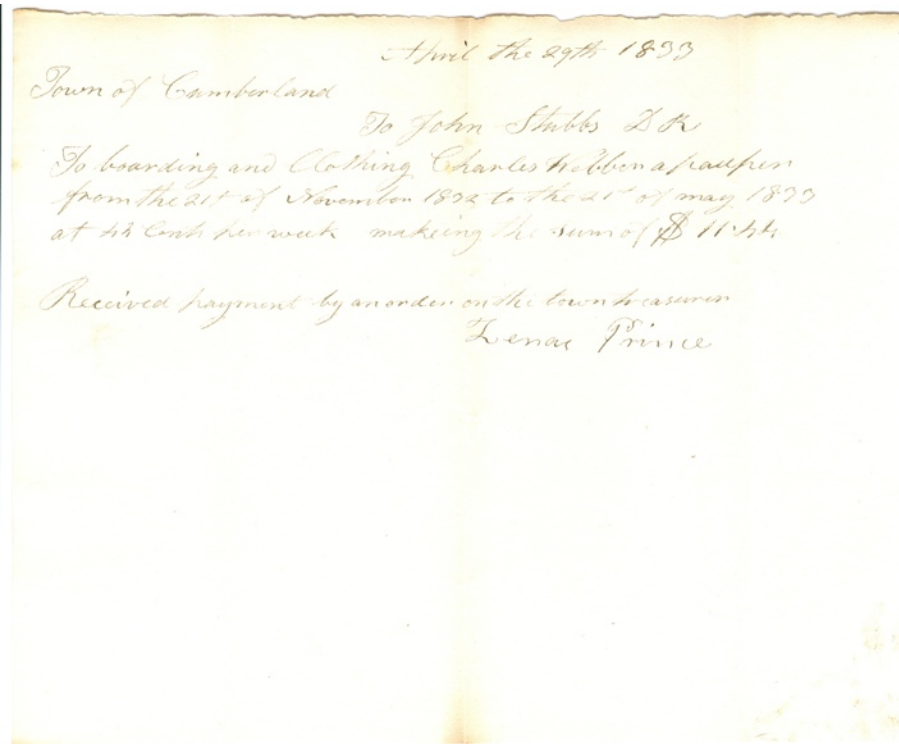 April the 29th 1833
Town of Cumberland
To John Stubbs DR
To boarding and Clothing Charles Webber a pauper
from the 21st of November 1832 to the 21st of may 1833
at 44 Cents per week makeing the sum of $ 11.44
Received payment by an order on the town treasurer
Zenas Prince